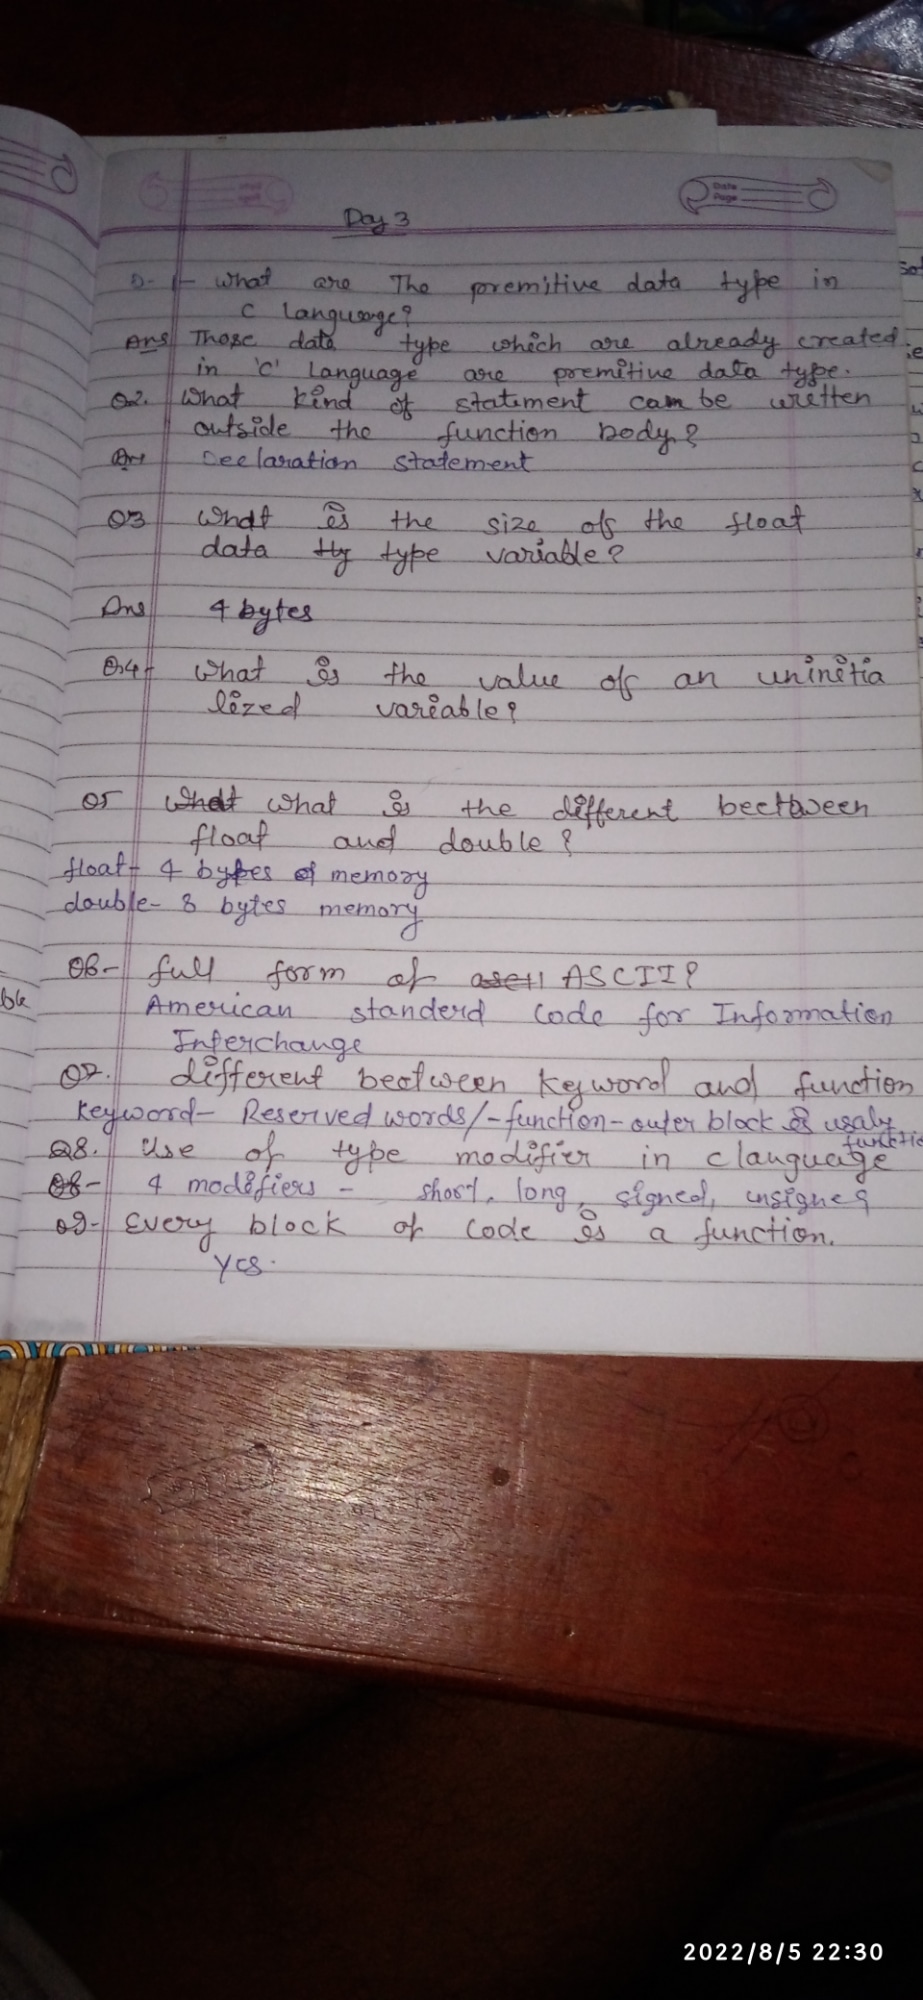 Date
Page
Day 3
Q-1- what are The premitive data type in
C language?
Ans Those data type which are already created
in 'C' Language are premitive data type.
Q2. What kind of statement can be written
outside the function body?
Declaration statement
Q3 What is the size of the float
data ty type variable?
Ans 4 bytes
Q.4- What is the value of an uninitia
lized variable?
Q5 What what is the different beetween
float and double?
float- 4 bytes of memory
double- 8 bytes memory
Q6- full form of ascii ASCII?
American standerd Code for Information
Interchange
Q7. different beetween keyword and function
Keyword- Reserved words/-function-outer block is usaly
functio
Q8. Use of type modifier in c language
Q8- 4 modifiers - short, long, signed, unsigned
Q9- Every block of code is a function.
Yes.
2022/8/5 22:30